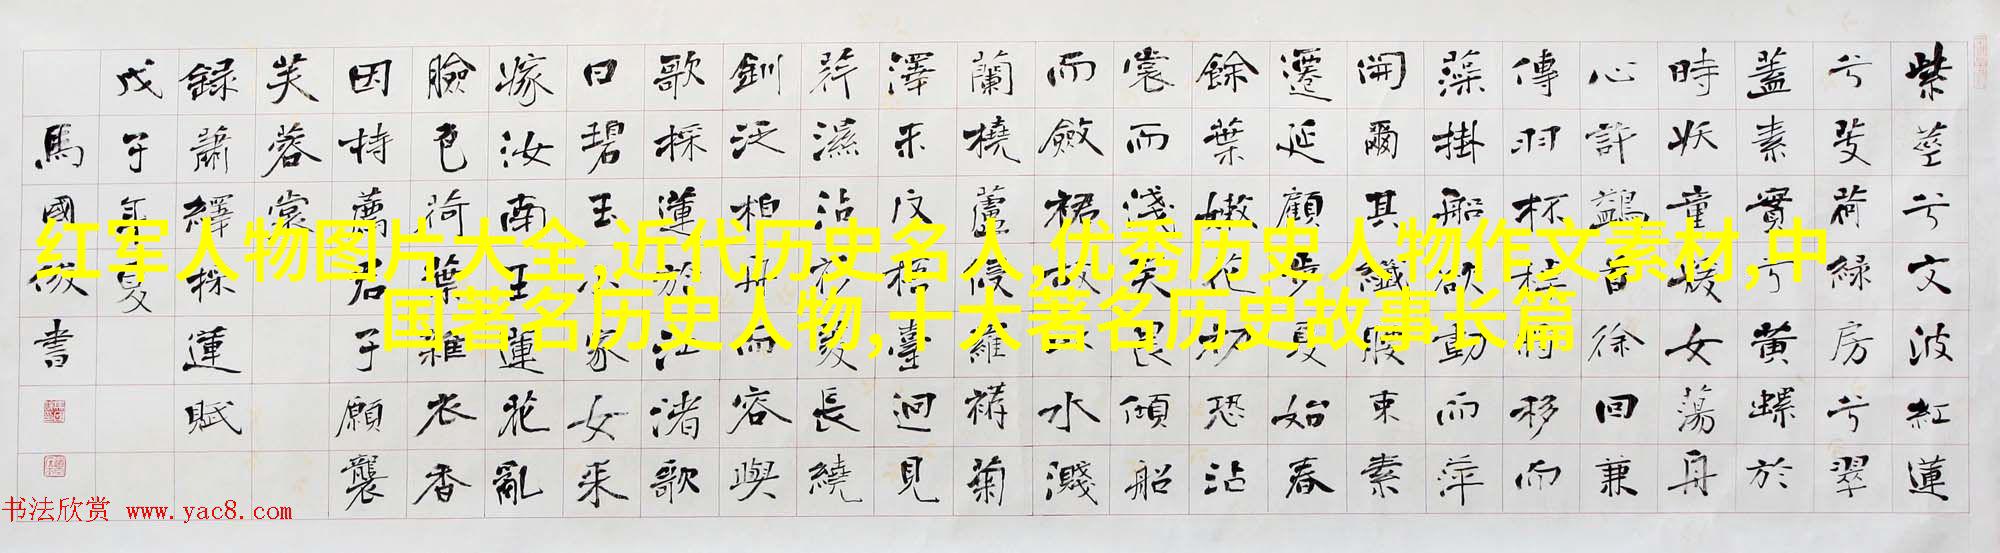 紫莖兮文波紅蓮
兮芰荷綠房兮翠
蓋素實兮黃螺於
時妖童媛女蕩舟
心許鷁首徐回兼
傳羽杯棹將移而
藻掛船欲動而萍
開爾其纖腰束素
遷延顧步夏始春
餘葉嫩花初恐沾
裳而淺笑畏傾船
而斂裾故以水濺
蘭橈蘆侵羅襪菊
澤未反梧臺迥見
荇濕沾衫菱長繞
釧泛柏舟而容與
歌採蓮於江渚歌
曰碧玉小家女来
嫁汝南王蓮花亂
臉色荷葉雜衣香
因持薦君子願襲
芙蓉裳
錄蕭繹採蓮賦
戊子年夏
馬國俊書
红军人物图片大全,近代历史名人,优秀历史人物作文素材,中
国著名历史人物,十大著名历史故事长篇
书法欣赏 www.yac8.com